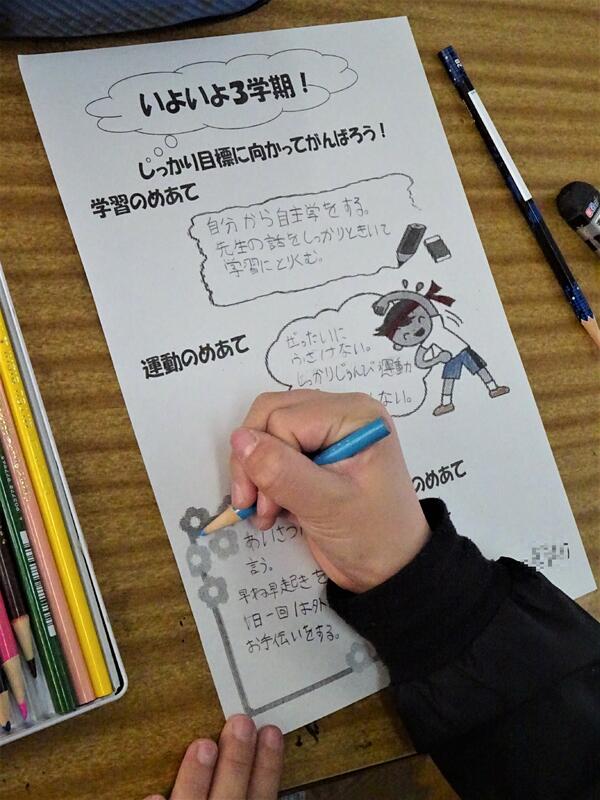 いよいよ3学期！
しっかり目標に向かってがんばろう！
学習のめあて
自分から自主学をする。
先生の話をしっかりときいて
学習にとりくむ。
運動のめあて
ぜったいに
うさけない。
しっかりじゅんび運動
ない。
のめあて
あいさつ
言う。
早ね早起きを
1日一回は外
お手伝いをする。